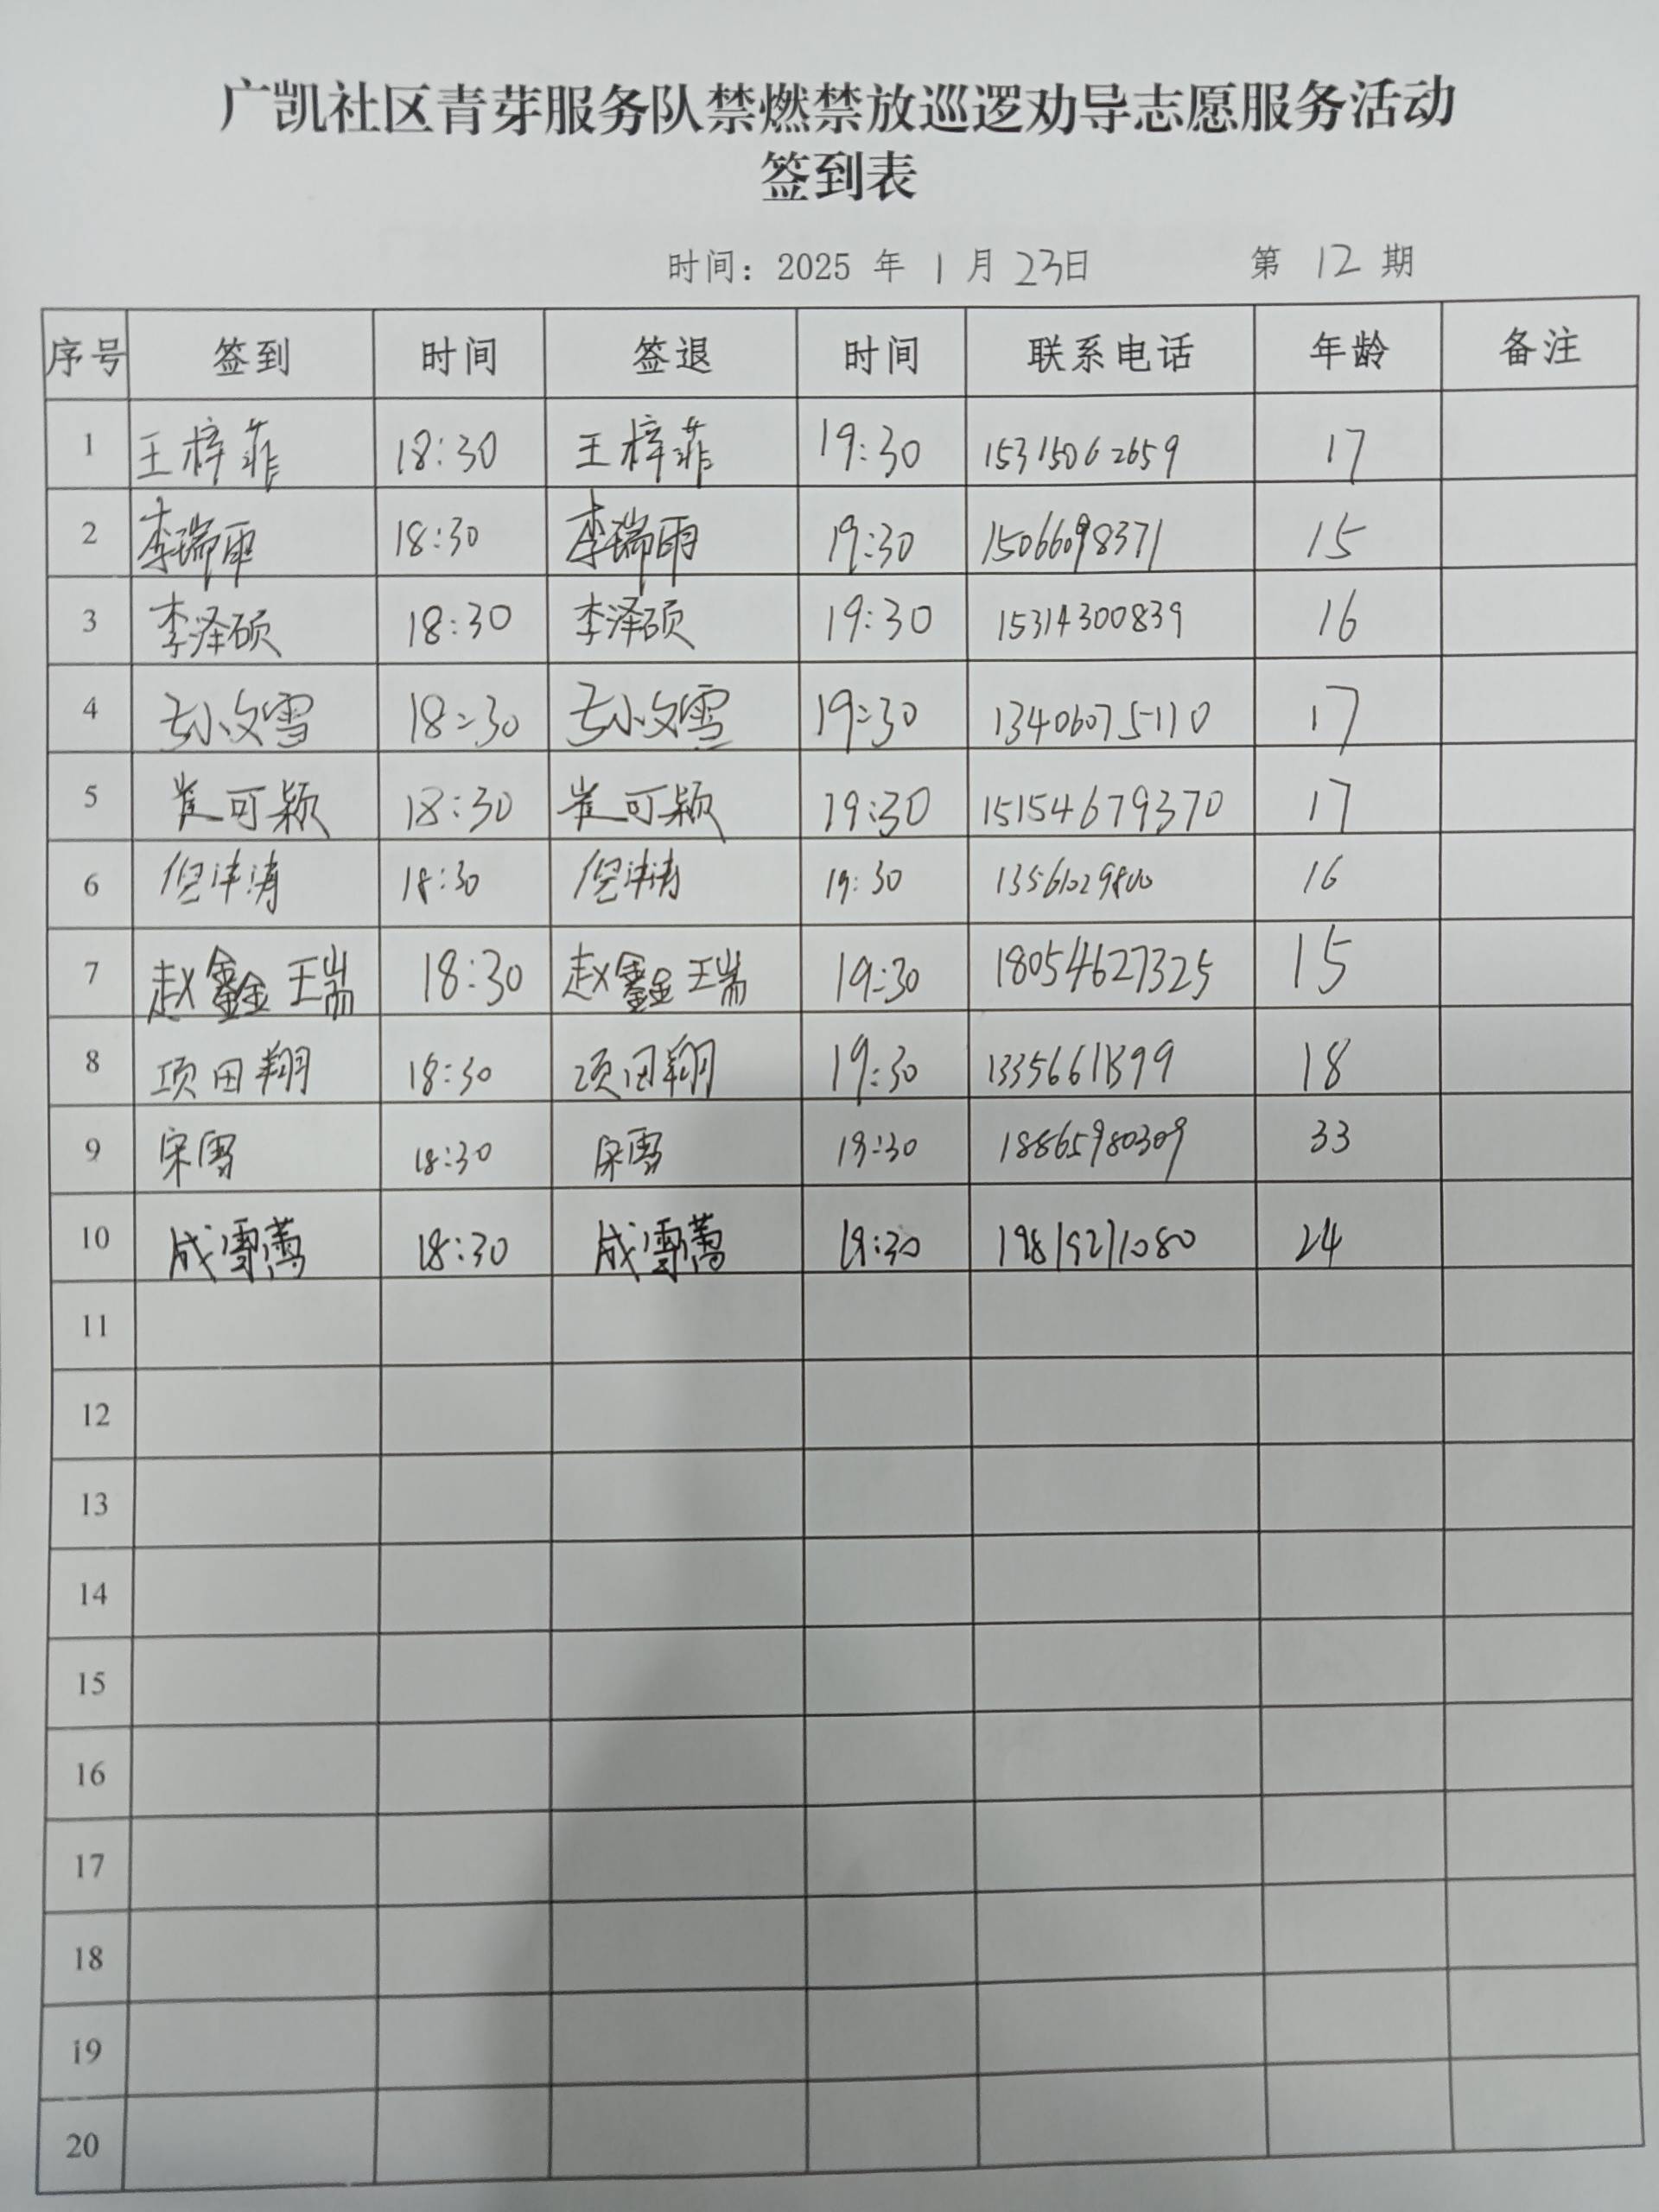 广凯社区青芽服务队禁燃禁放巡逻劝导志愿服务活动
签到表
时间：2025 年 1 月 23日 第 12 期
序号 签到 时间 签退 时间 联系电话 年龄 备注
1 王梓菲 18:30 王梓菲 19:30 15315062659 17
2 李瑞雨 18:30 李瑞雨 19:30 15066098371 15
3 李泽硕 18:30 李泽硕 19:30 15314300839 16
4 孙文雪 18:30 孙文雪 19:30 13406075110 17
5 崔可颖 18:30 崔可颖 19:30 15154679370 17
6 18:30 19:30 16
7 赵鑫瑞 18:30 赵鑫瑞 19:30 18054627325 15
8 项田翔 18:30 项田翔 19:30 18
9 宋雪 18:30 宋雪 19:30 18865980309 33
10 18:30 19:30 19819211080 24
11
12
13
14
15
16
17
18
19
20